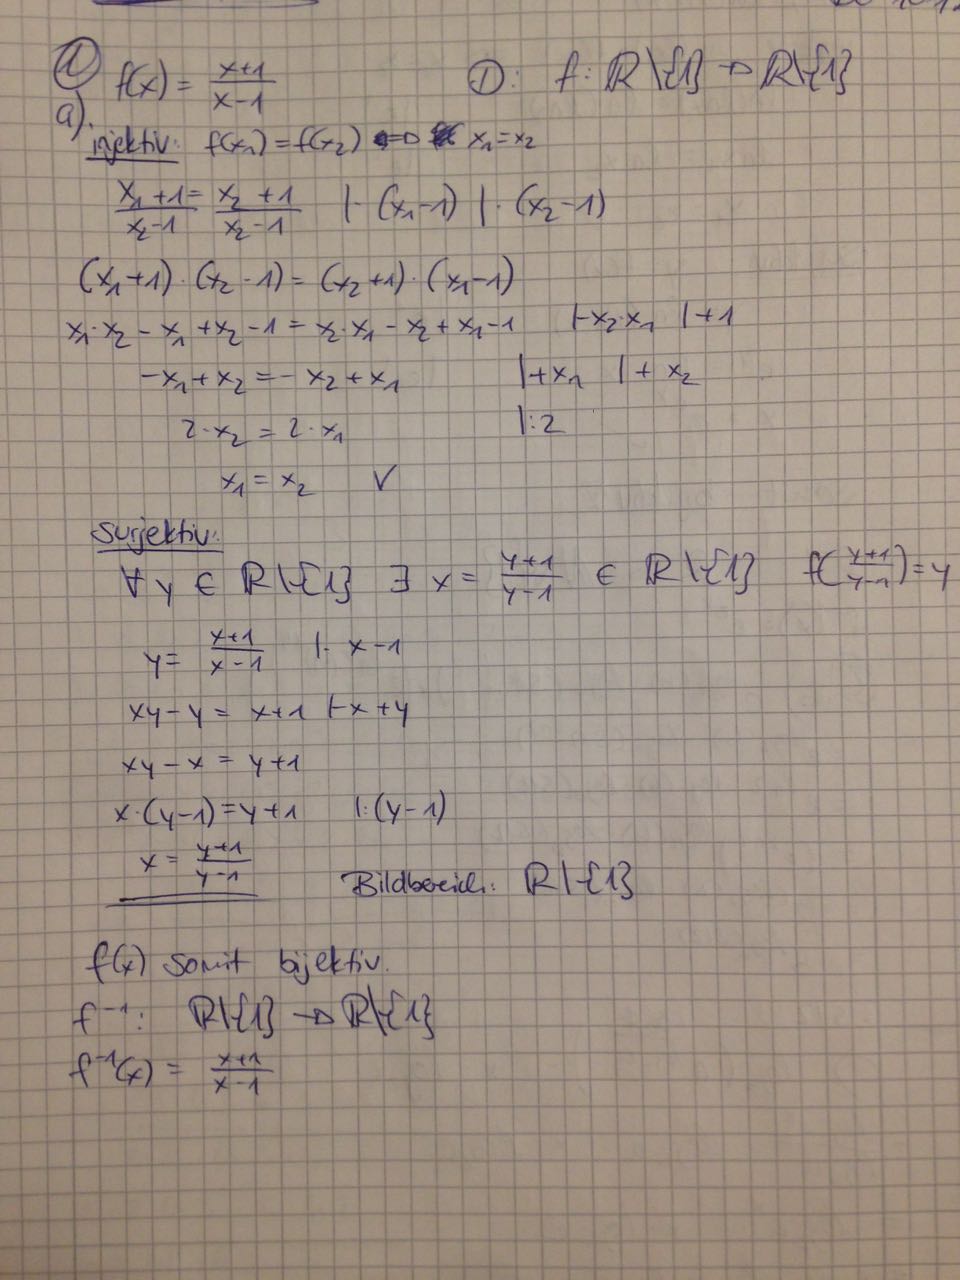 ① f(x) = (x+1)/(x-1)    D: f: ℝ\{1} → ℝ\{1}
a).
injektiv: f(x₁) = f(x₂) ⇔ x₁ = x₂
(x₁+1)/(x₂-1) = (x₂+1)/(x₂-1)  |·(x₁-1) |·(x₂-1)
(x₁+1)·(x₂-1) = (x₂+1)·(x₁-1)
x₁·x₂ - x₁ + x₂ - 1 = x₂·x₁ - x₂ + x₁ - 1  |-x₂·x₁ |+1
-x₁ + x₂ = - x₂ + x₁  |+x₁ |+ x₂
2·x₂ = 2·x₁  |:2
x₁ = x₂ ✓
Surjektiv:
∀ y ∈ ℝ\{1} ∃ x = (y+1)/(y-1) ∈ ℝ\{1}  f((y+1)/(y-1)) = y
y = (x+1)/(x-1)  |· x-1
xy-y = x+1  |-x+y
xy-x = y+1
x·(y-1) = y+1  |:(y-1)
x = (y+1)/(y-1)  Bildbereich: ℝ\{1}
f(x) somit bijektiv.
f⁻¹: ℝ\{1} → ℝ\{1}
f⁻¹(x) = (x+1)/(x-1)